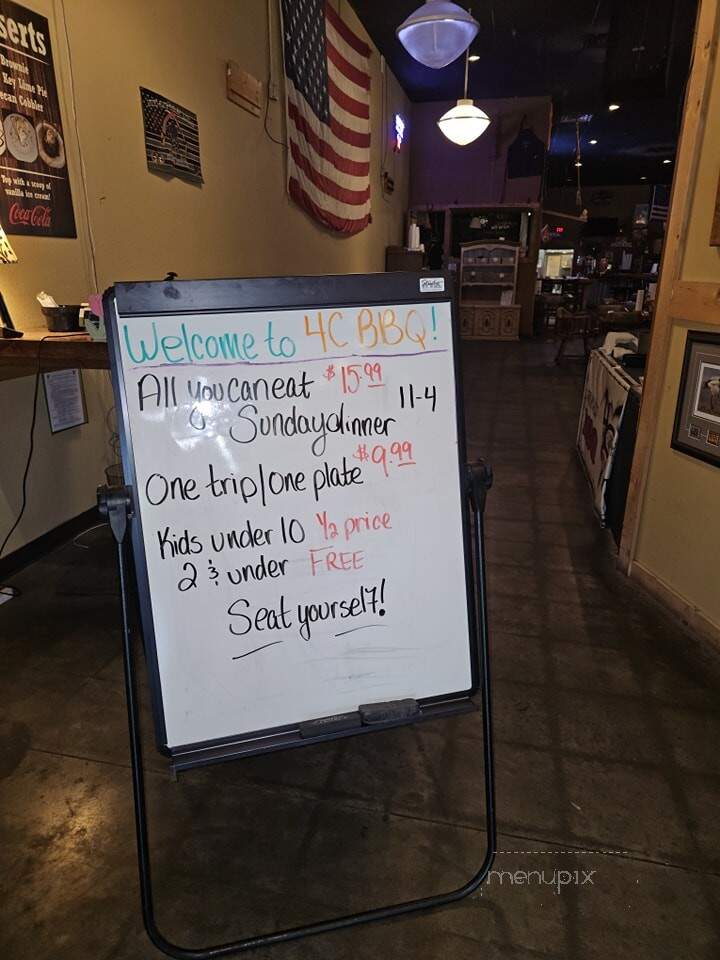 serts
Brownie
Key Lime Pie
ecan Cobbler
Top with a scoop of
vanilla ice cream!
Coca-Cola
Welcome to 4C BBQ!
All you can eat $15.99
Sunday dinner 11-4
One trip/one plate $9.99
Kids under 10 ½ price
2 & under FREE
Seat yourself!
menupix